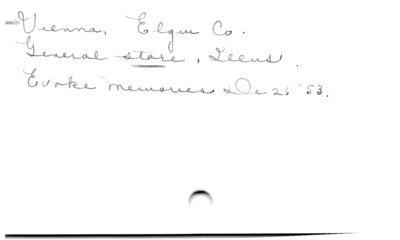 Vienna, Elgin Co.
General store, Illus.
Evoke Memories De 26 '53.